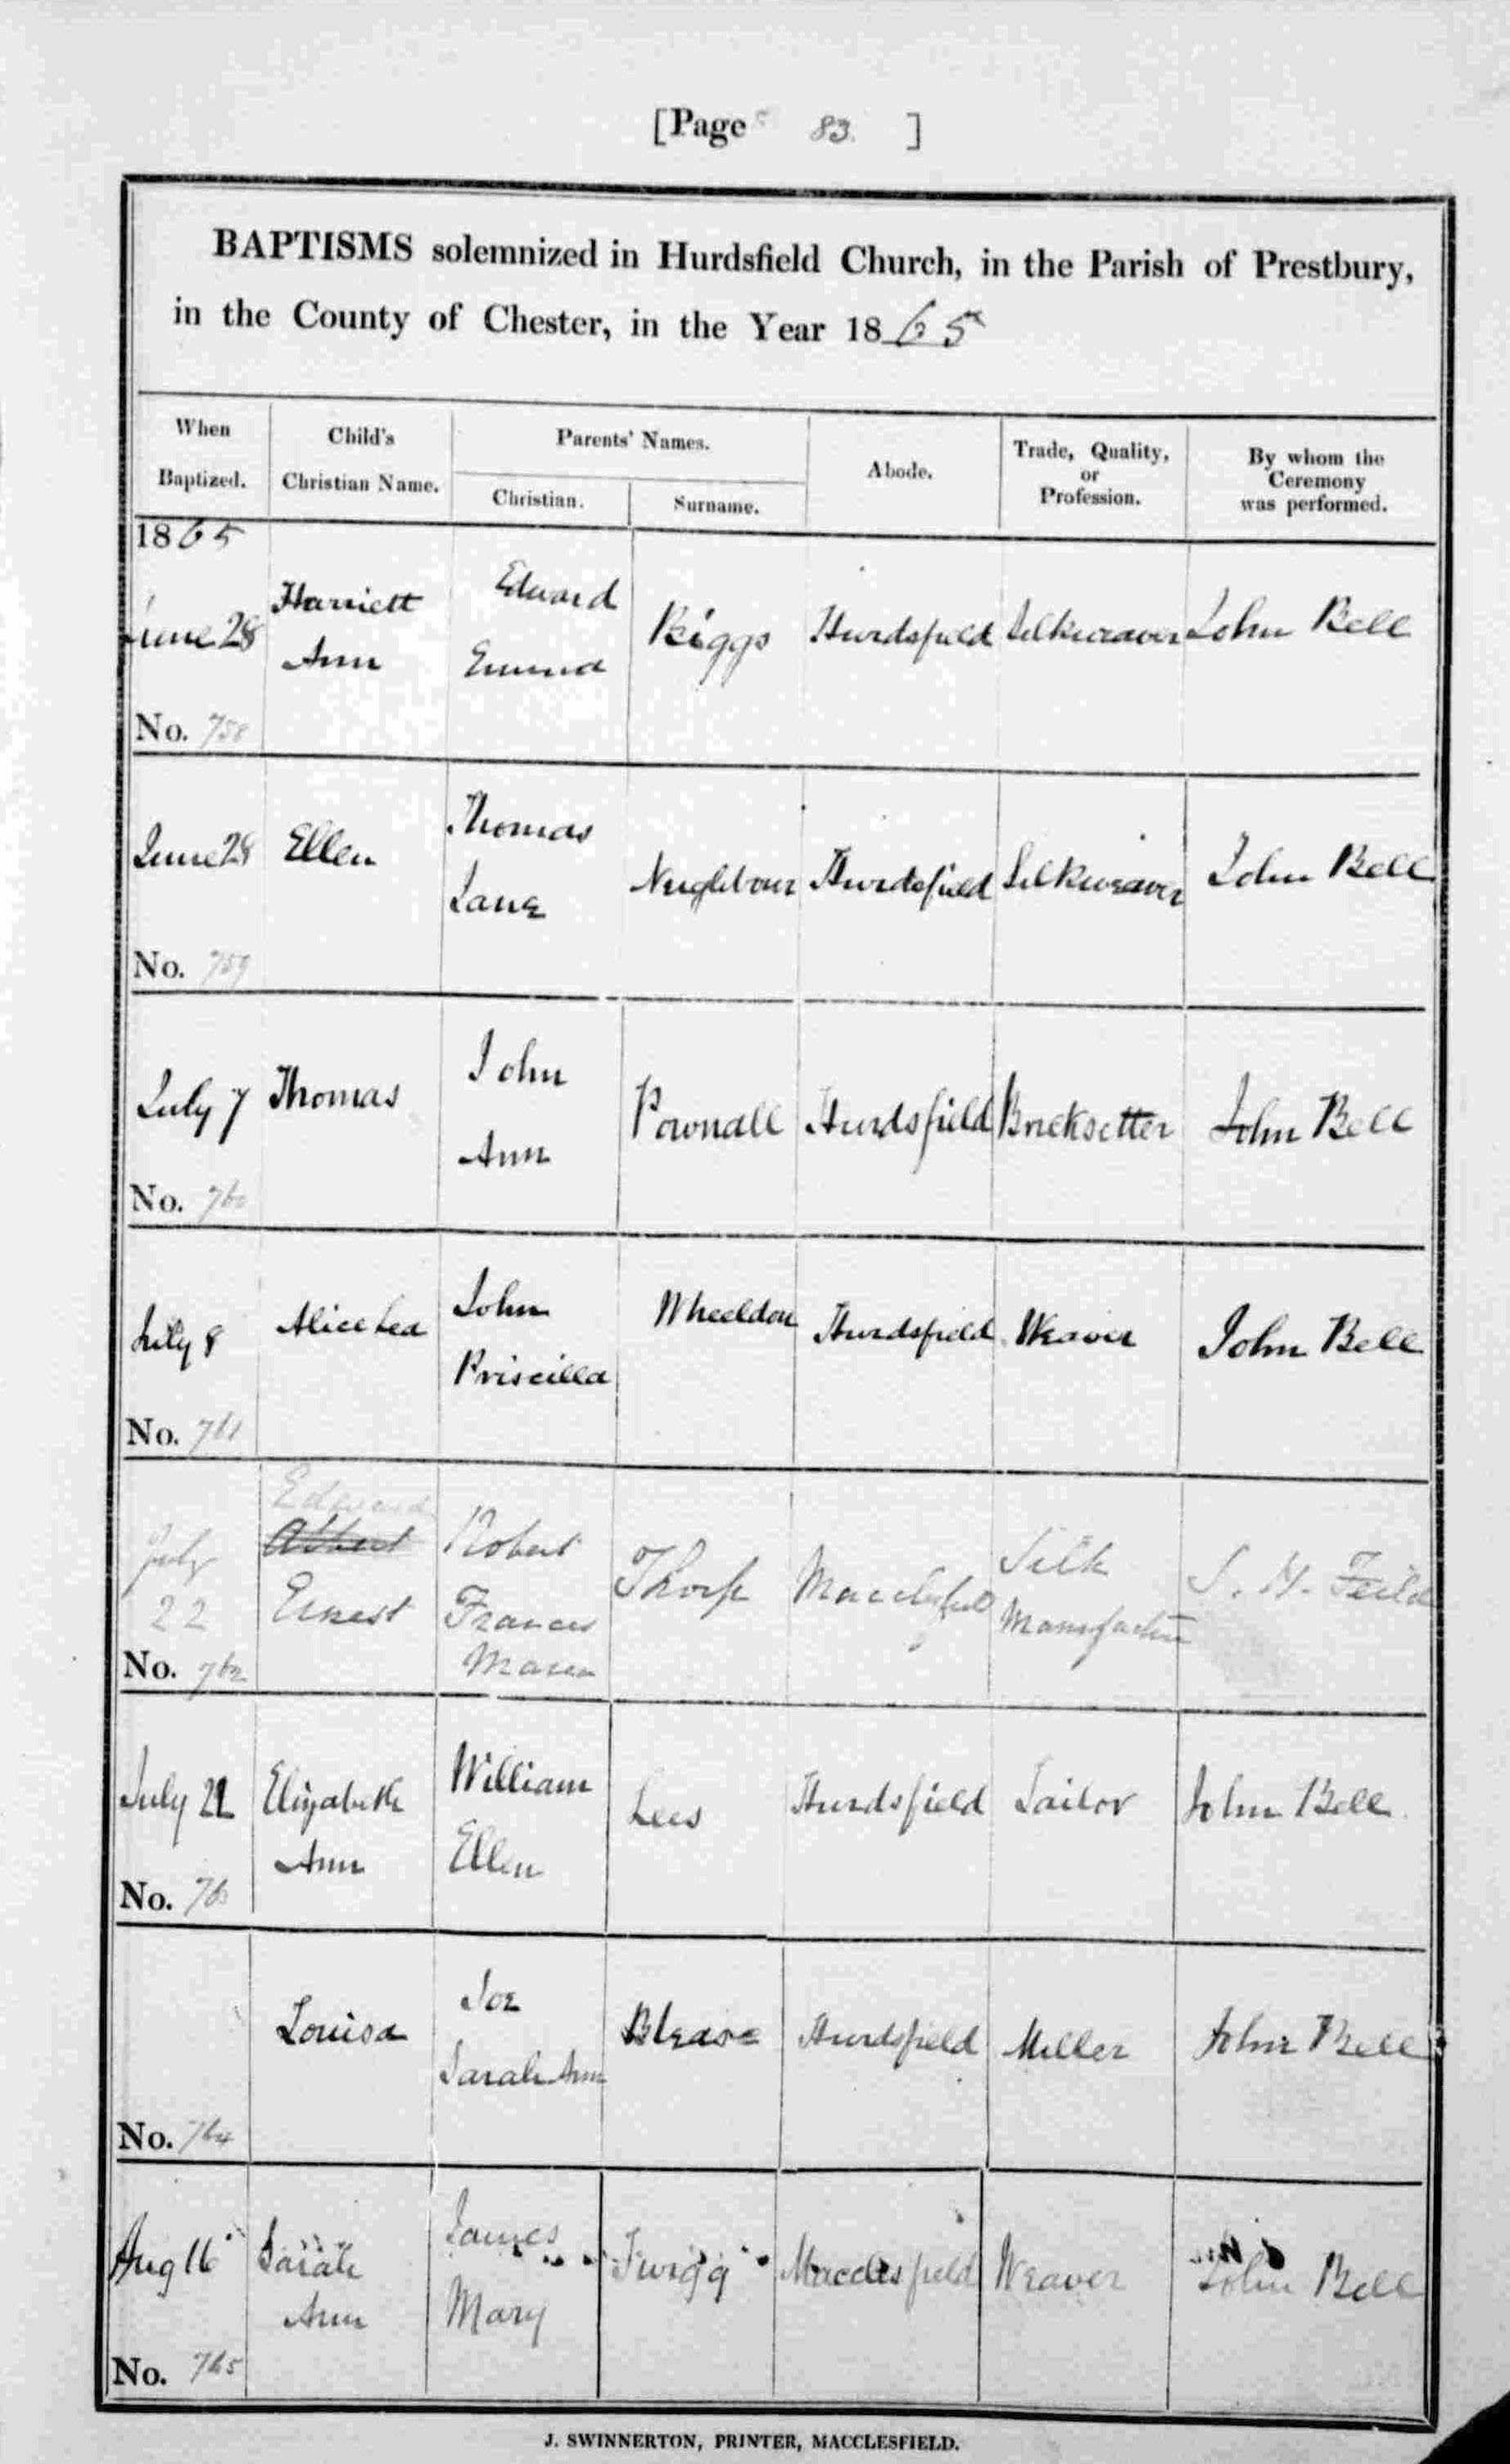 [Page 83. ]
BAPTISMS solemnized in Hurdsfield Church, in the Parish of Prestbury,
in the County of Chester, in the Year 1865
When Baptized.
Child's Christian Name.
Parents' Names.
Christian.
Surname.
Abode.
Trade, Quality, or Profession.
By whom the Ceremony was performed.
1865
June 28
Harriett
Ann
Edward
Emma
Biggs
Hurdsfield
Silkweaver
John Bell
No. 758
June 28
Ellen
Thomas
Jane
Neighbour
Hurdsfield
Silkweaver
John Bell
No. 759
July 7
Thomas
John
Ann
Pownall
Hurdsfield
Bricksetter
John Bell
No. 760
July 8
Alice Lea
John
Priscilla
Wheeldon
Hurdsfield
Weaver
John Bell
No. 761
July
22
Edward
Albert
Ernest
Robert
Frances
Maria
Thorp
Macclesfield
Silk
Manufacturer
S. H. Feild
No. 762
July 22
Elizabeth
Ann
William
Ellen
Lees
Hurdsfield
Tailor
John Bell
No. 763
Louisa
Joe
Sarah Ann
Blease
Hurdsfield
Miller
John Bell
No. 764
Aug 16
Sarah
Ann
James
Mary
Twigg
Macclesfield
Weaver
John Bell
No. 765
J. SWINNERTON, PRINTER, MACCLESFIELD.